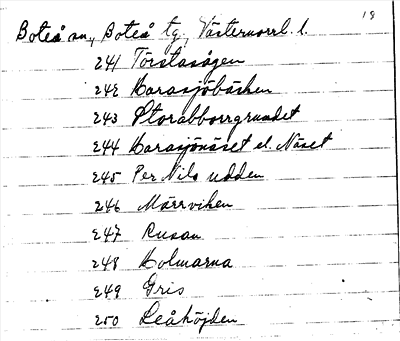 18
Boteå sn, Boteå tg, Västernorrl. l.
241 Törstasågen
242 Karasjöbäcken
243 Storabborrgrundet
244 Karasjönäset el. Näset
245 Per Nils udden
246 Märrviken
247 Rusan
248 Holmarna
249 Gris
250 Leåhöjden